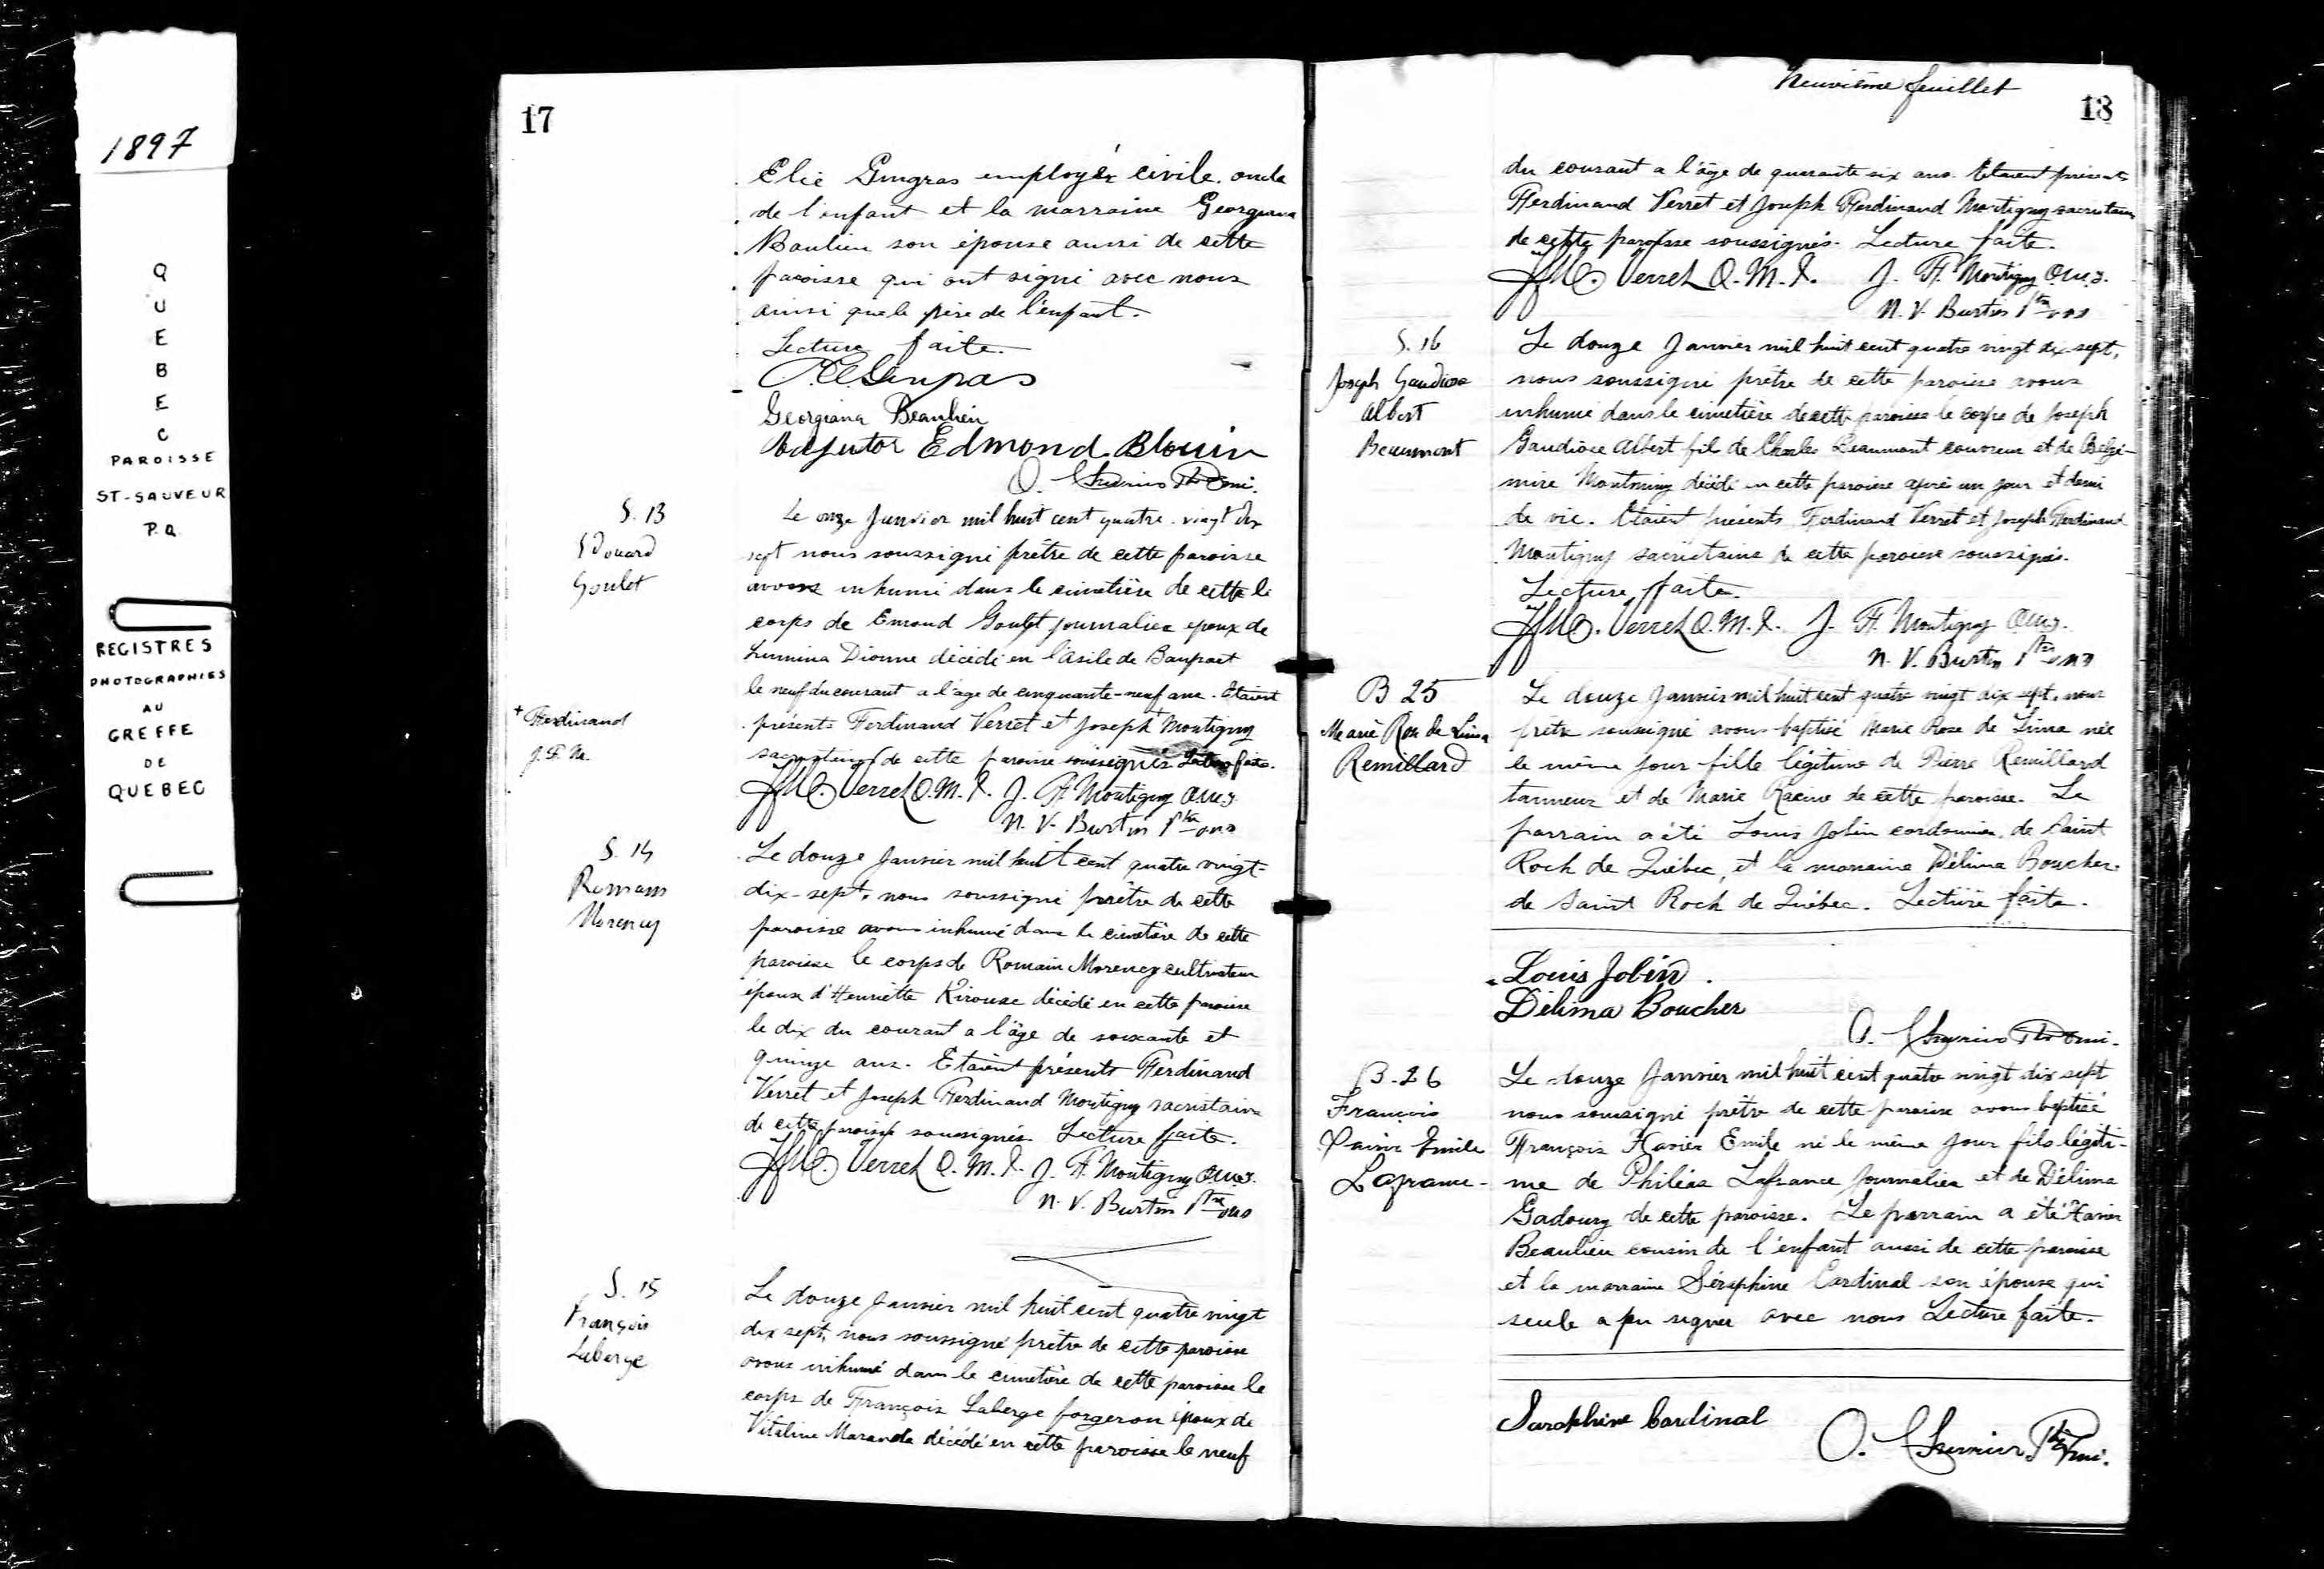 1897
QUEBEC
PAROISSE
ST-SAUVEUR
P.Q.
REGISTRES
PHOTOGRAPHIES
AU
GREFFE
DE
QUEBEC
17
Elie Gingras employé civile. oncle
de l'enfant et la marraine Georgiana
Beaulieu son épouse aussi de cette
paroisse qui ont signé avec nous
ainsi que le père de l'enfant.
Lecture faite.
Georgiana Beaulieu
Edmond Blouin
S. 13
Edouard
Goulet
Le onze Janvier mil huit cent quatre-vingt dix
sept nous soussigné prêtre de cette paroisse
avons inhumé dans le cimetière de cette le
corps de Emond Goulet journalier epoux de
Dionne décédé en l'asile de Beauport
le neuf du courant a l'age de cinquante-neuf ans. Etaient
+ Ferdinand
J.F.M.
présents Ferdinand Verret et Joseph + Montigny
de cette paroisse soussignés Lecture faite.
Verret O.M.I. J. F. Montigny O.M.I.
N. V. Burtin Ptre OMI
S. 14
Romain
Morency
Le douze Janvier mil huit cent quatre vingt-
dix-sept, nous soussigné prêtre de cette
paroisse avons inhumé dans le cimetière de cette
paroisse le corps de Romain Morency cultivateur
époux d'Henriette Kirouac décédé en cette paroisse
le dix du courant a l'âge de soixante et
quinze ans. Etaient présents Ferdinand
Verret et Joseph Ferdinand Montigny sacristains
de cette paroisse soussignés. Lecture faite.
Verret O.M.I. J. F. Montigny O.M.I.
N. V. Burtin Ptre OMI
S. 15
François
Laberge
Le douze Janvier mil huit cent quatre vingt
dix sept, nous soussigné prêtre de cette paroisse
avons inhumé dans le cimetière de cette paroisse le
corps de François Laberge forgeron époux de
Vitaline Maranda décédé en cette paroisse le neuf
Neuvième feuillet
18
du courant a l'âge de quarante six ans. Etaient présents
Ferdinand Verret et Joseph Ferdinand Montigny sacristains
de cette paroisse soussignés. Lecture faite.
Verret O.M.I. J. F. Montigny O.M.I.
N. V. Burtin Ptre OMI
S. 16
Joseph Gaudiose
Albert
Beaumont
Le douze Janvier mil huit cent quatre vingt dix-sept,
nous soussigné prêtre de cette paroisse avons
inhumé dans le cimetière de cette paroisse le corps de Joseph
Gaudiose Albert fils de Charles Beaumont couvreur et de Belzé-
mire Montminy décédé en cette paroisse après un jour et demi
de vie. Etaient présents Ferdinand Verret et Joseph Ferdinand
Montigny sacristains de cette paroisse soussignés.
Lecture faite.
Verret O.M.I. J. F. Montigny O.M.I.
N. V. Burtin Ptre OMI
B 25
Marie Rose de Lima
Remillard
Le douze Janvier mil huit cent quatre vingt dix sept, nous
prêtre soussigné avons baptisé Marie Rose de Lima née
le même jour fille légitime de Pierre Remillard
tanneur et de Marie Racine de cette paroisse. Le
parrain a été Louis Jobin cordonnier de Saint
Roch de Québec, et la marraine Délima Boucher
de Saint Roch de Québec. Lecture faite.
Louis Jobin.
Délima Boucher
B. 26
François
Xavier Emile
Lafrance
Le douze Janvier mil huit cent quatre vingt dix sept
nous soussigné prêtre de cette paroisse avons baptisé
François Xavier Emile né le même jour fils légiti-
me de Philéas Lafrance journalier et de Délima
Gadoury de cette paroisse. Le parrain a été Xavier
Beaulieu cousin de l'enfant aussi de cette paroisse
et la marraine Séraphine Cardinal son épouse qui
seule a pu signer avec nous Lecture faite.
Saraphine Cardinal